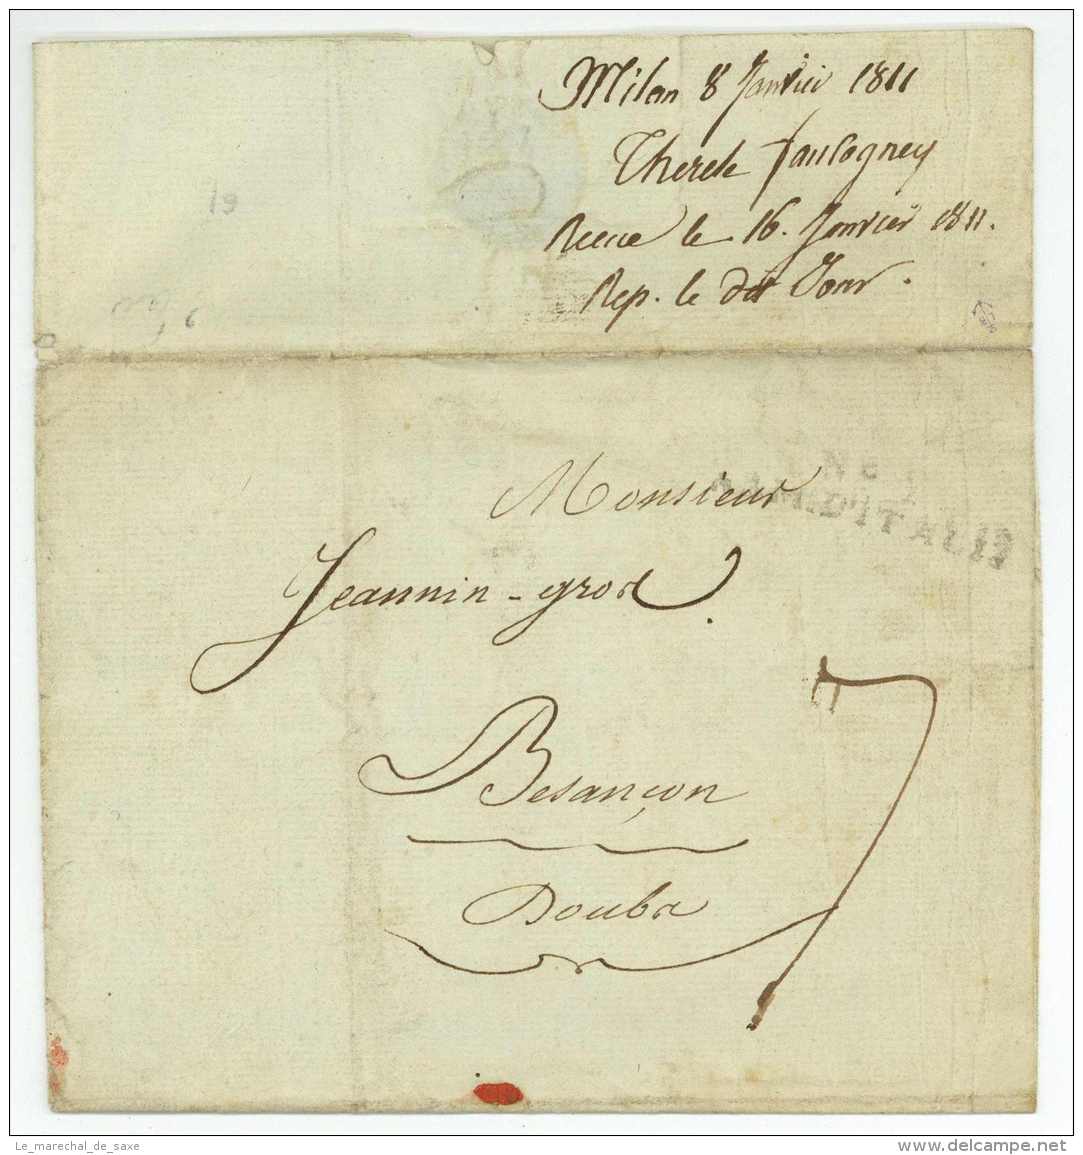 Milan 8 Janvier 1811
Therese faulogney
Recue le 16. Janvier 1811.
Rep. le dit Jour.
19
6
Monsieur
NE
ARM.D'ITALIE
Jeannin-gros
7
Besançon
Doubs
Le_marechal_de_saxe
delcampe.net